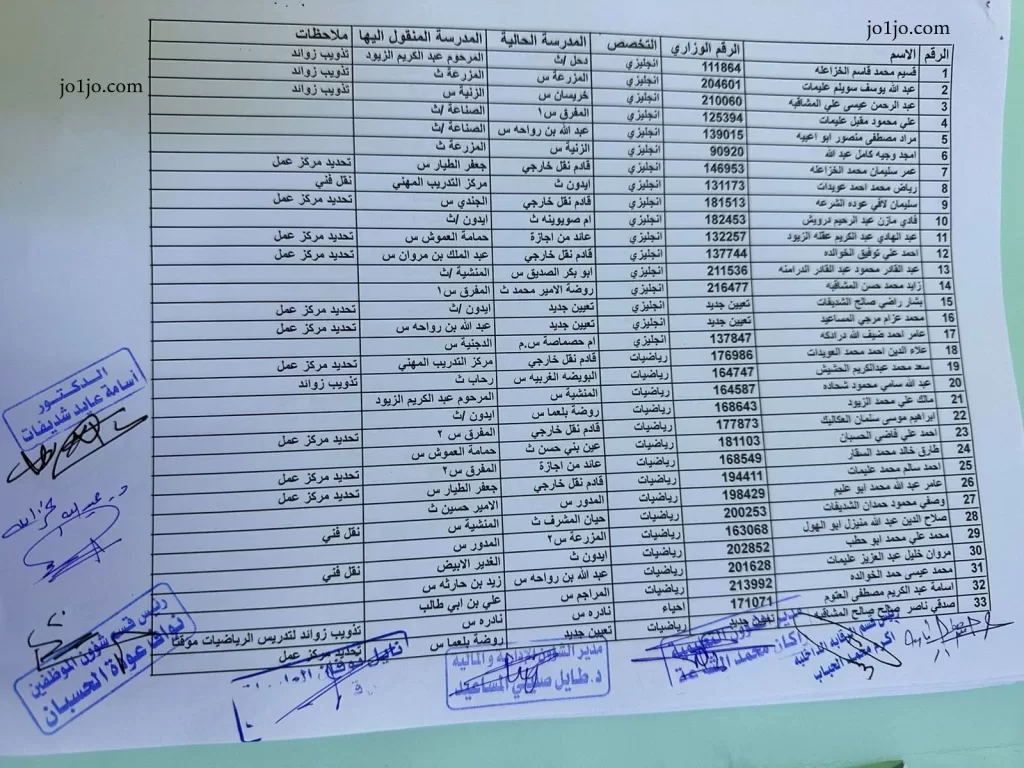 jo1jo.com
jo1jo.com
الرقم الاسم الرقم الوزاري التخصص المدرسة الحالية المدرسة المنقول اليها ملاحظات
1 قسيم محمد قاسم الخزاعله 111864 انجليزي دحل /ث المرحوم عبد الكريم الزيود تذويب زوائد
2 عبد الله يوسف سويلم عليمات 204601 انجليزي المزرعة س المزرعة ث تذويب زوائد
3 عبد الرحمن عيسى علي المشاقبه 210060 انجليزي خريسان س الزنية س تذويب زوائد
4 علي محمود مقبل عليمات 125394 انجليزي المفرق س١ الصناعة /ث
5 مراد مصطفى منصور ابو اعبيه 139015 انجليزي عبد الله بن رواحه س الصناعة /ث
6 امجد وجيه كامل عبد الله 90920 انجليزي الزنية س المزرعة ث
7 عمر سليمان محمد الخزاعله 146953 انجليزي قادم نقل خارجي جعفر الطيار س تحديد مركز عمل
8 رياض محمد احمد عويدات 131173 انجليزي ايدون ث مركز التدريب المهني نقل فني
9 سليمان لافي عوده الشرعه 181513 انجليزي قادم نقل خارجي الجندي س تحديد مركز عمل
10 فادي مازن عبد الرحيم درويش 182453 انجليزي ام صويوينه ث ايدون /ث
11 عبد الهادي عبد الكريم عقله الزيود 132257 انجليزي عائد من اجازة حمامة العموش س تحديد مركز عمل
12 احمد علي توفيق الخوالده 137744 انجليزي قادم نقل خارجي عبد الملك بن مروان س تحديد مركز عمل
13 عبد القادر محمود عبد القادر الدرامنه 211536 انجليزي ابو بكر الصديق س المنشية /ث
14 زايد محمد حسن المشاقبه 216477 انجليزي روضة الامير محمد ث المفرق س١
15 بشار راضي صالح الشديفات تعيين جديد انجليزي تعيين جديد ايدون /ث تحديد مركز عمل
16 محمد عزام مرجي المساعيد تعيين جديد انجليزي تعيين جديد عبد الله بن رواحه س تحديد مركز عمل
17 عامر احمد ضيف الله درادكه 137847 انجليزي ام حصماصة س.م الدجنية س
18 علاء الدين احمد محمد العويدات 176986 رياضيات قادم نقل خارجي مركز التدريب المهني تحديد مركز عمل
19 سعد محمد عبدالكريم الحشيش 164747 رياضيات البويضه الغربيه س رحاب ث تذويب زوائد
20 عبد الله سامي محمود شحاده 164587 رياضيات المنشية س المرحوم عبد الكريم الزيود
21 مالك علي محمد الزيود 168643 رياضيات روضة بلعما س ايدون /ث
22 ابراهيم موسى سلمان العكاليك 177873 رياضيات قادم نقل خارجي المفرق س ٢ تحديد مركز عمل
23 احمد علي فاضي الحسبان 181103 رياضيات عين بني حسن ث حمامة العموش س
24 طارق خالد محمد السقار 168549 رياضيات عائد من اجازة المفرق س٢ تحديد مركز عمل
25 احمد سالم محمد عليمات 194411 رياضيات قادم نقل خارجي جعفر الطيار س تحديد مركز عمل
26 عامر عبد الله محمد ابو عليم 198429 رياضيات المدور س الامير حسين ث
27 وصفي محمود حمدان الشديفات 200253 رياضيات حيان المشرف ث المنشية س نقل فني
28 صلاح الدين عبد الله منيزل ابو الهول 163068 رياضيات المزرعة س٢ المدور س
29 محمد علي محمد ابو حطب 202852 رياضيات ايدون ث الغدير الابيض نقل فني
30 مروان خليل عبد العزيز عليمات 201628 رياضيات عبد الله بن رواحه س زيد بن حارثه س
31 محمد عيسى حمد الخوالده 213992 رياضيات المراجم س علي بن ابي طالب
32 اسامة عبد الكريم مصطفى العتوم 171071 احياء نادره س نادره س تذويب زوائد لتدريس الرياضيات موقتا
33 صدقي ناصر صالح صالح المشاقبه تعيين جديد تعيين جديد روضة بلعما س تحديد مركز عمل
الدكتور
أسامة عايد شديفات
رئيس قسم شؤون الموظفين
نواف عوادة الحسبان
مدير الشؤون الادارية والمالية
د. طايل المساعيد
رئيس قسم الرقابة الداخلية
اكرم محمد الحباب